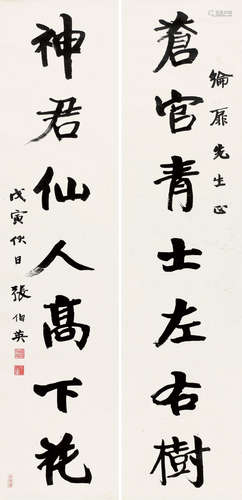 蒼官青士左右樹
綸扉先生正
神君仙人高下花
戊寅秋日 張伯英